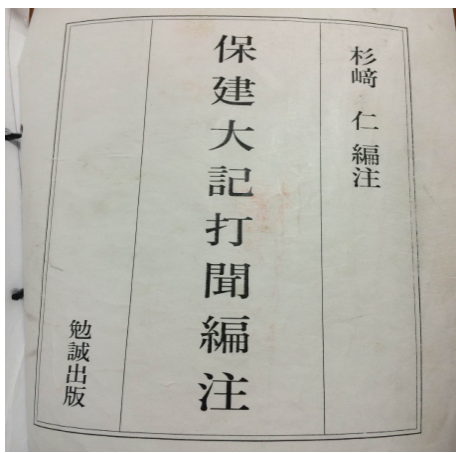 杉﨑 仁 編注
保建大記打聞編注
勉誠出版